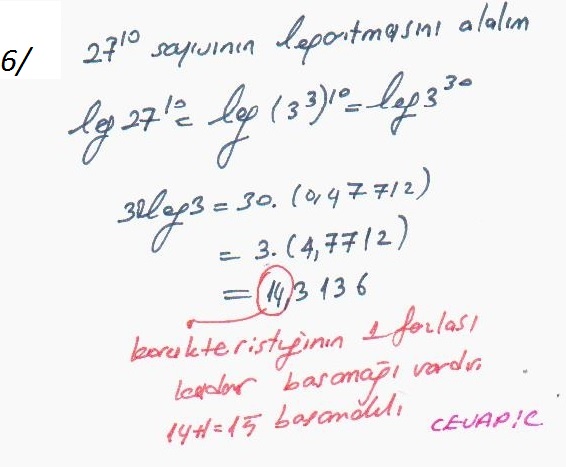 6/
27¹⁰ sayısının logaritmasını alalım
log 27¹⁰ = log (3³)¹⁰ = log 3³⁰
30log3 = 30. (0,47712)
= 3. (4,7712)
= 14,3136
karakteristiğinin 1 fazlası
kadar basamağı vardır.
14+1=15 basamaklı
CEVAP: C